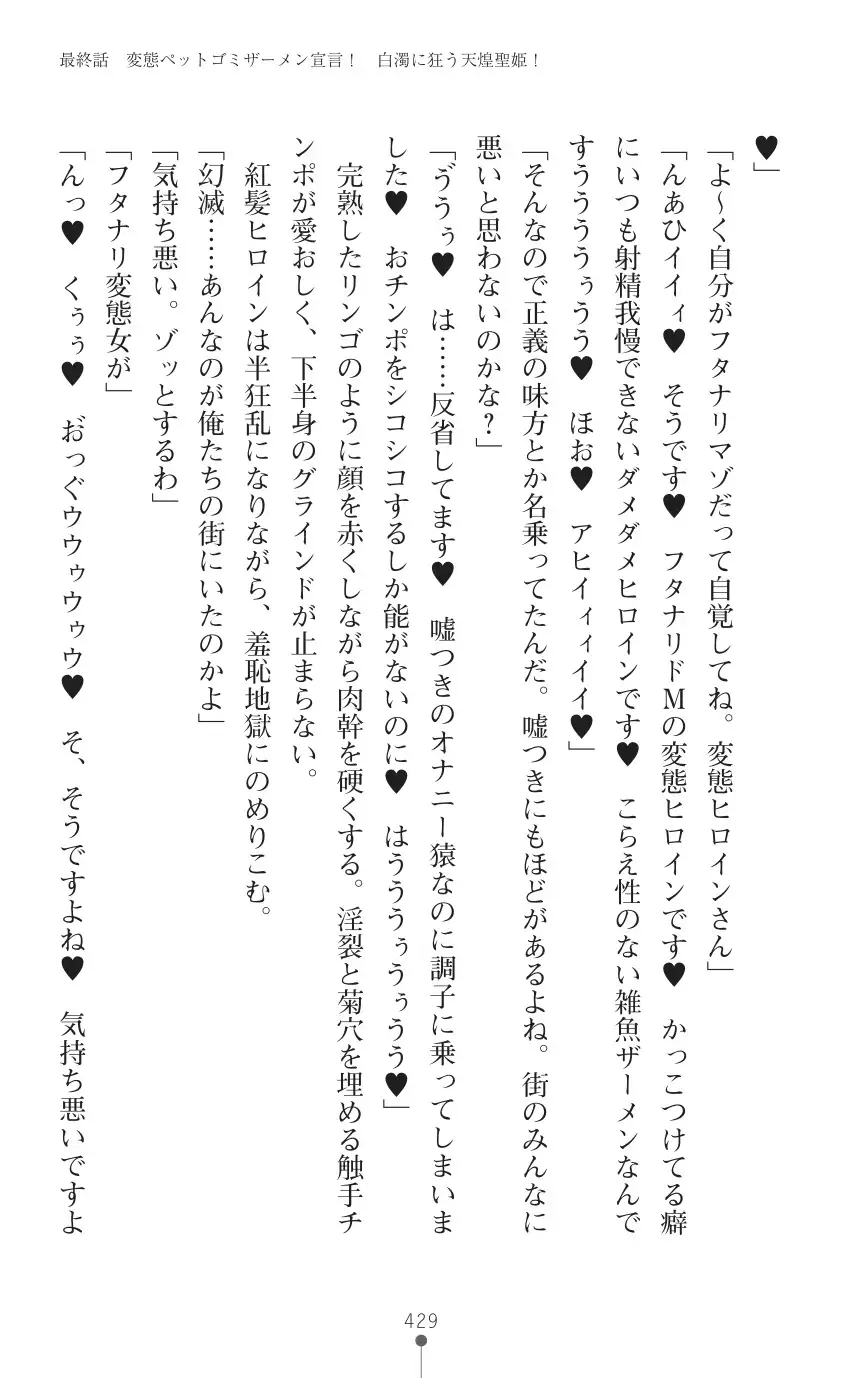 最終話　変態ペットゴミザーメン宣言！　白濁に狂う天煌聖姫！
♥」
「よ～く自分がフタナリマゾだって自覚してね。変態ヒロインさん」
「んぁひイイィ♥　そうです♥　フタナリドＭの変態ヒロインです♥　かっこつけてる癖
にいつも射精我慢できないダメダメヒロインです♥　こらえ性のない雑魚ザーメンなんで
すうううぅうう♥　ほお♥　アヒイィィイイ♥」
「そんなので正義の味方とか名乗ってたんだ。嘘つきにもほどがあるよね。街のみんなに
悪いと思わないのかな？」
「ゔうぅ♥　は……反省してます♥　嘘つきのオナニー猿なのに調子に乗ってしまいま
した♥　おチンポをシコシコするしか能がないのに♥　はうううぅうぅうう♥」
　完熟したリンゴのように顔を赤くしながら肉幹を硬くする。淫裂と菊穴を埋める触手チ
ンポが愛おしく、下半身のグラインドが止まらない。
　紅髪ヒロインは半狂乱になりながら、羞恥地獄にのめりこむ。
「幻滅……あんなのが俺たちの街にいたのかよ」
「気持ち悪い。ゾッとするわ」
「フタナリ変態女が」
「んっ♥　くぅぅ♥　お゙っぐウウゥウゥウ♥　そ、そうですよね♥　気持ち悪いですよ
429